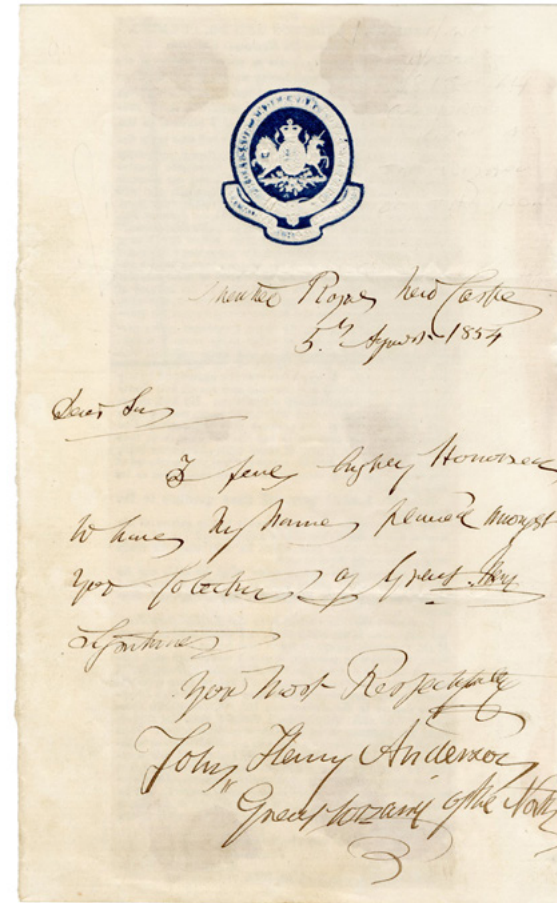 Theatre Royal New Castle
5th August 1854
Dear Sir
I feel highly Honored
to have my Name penned amongst
your Collection of Great Men
Signatures
your Most Respectfully
John Henry Anderson
Great Wizard of the North